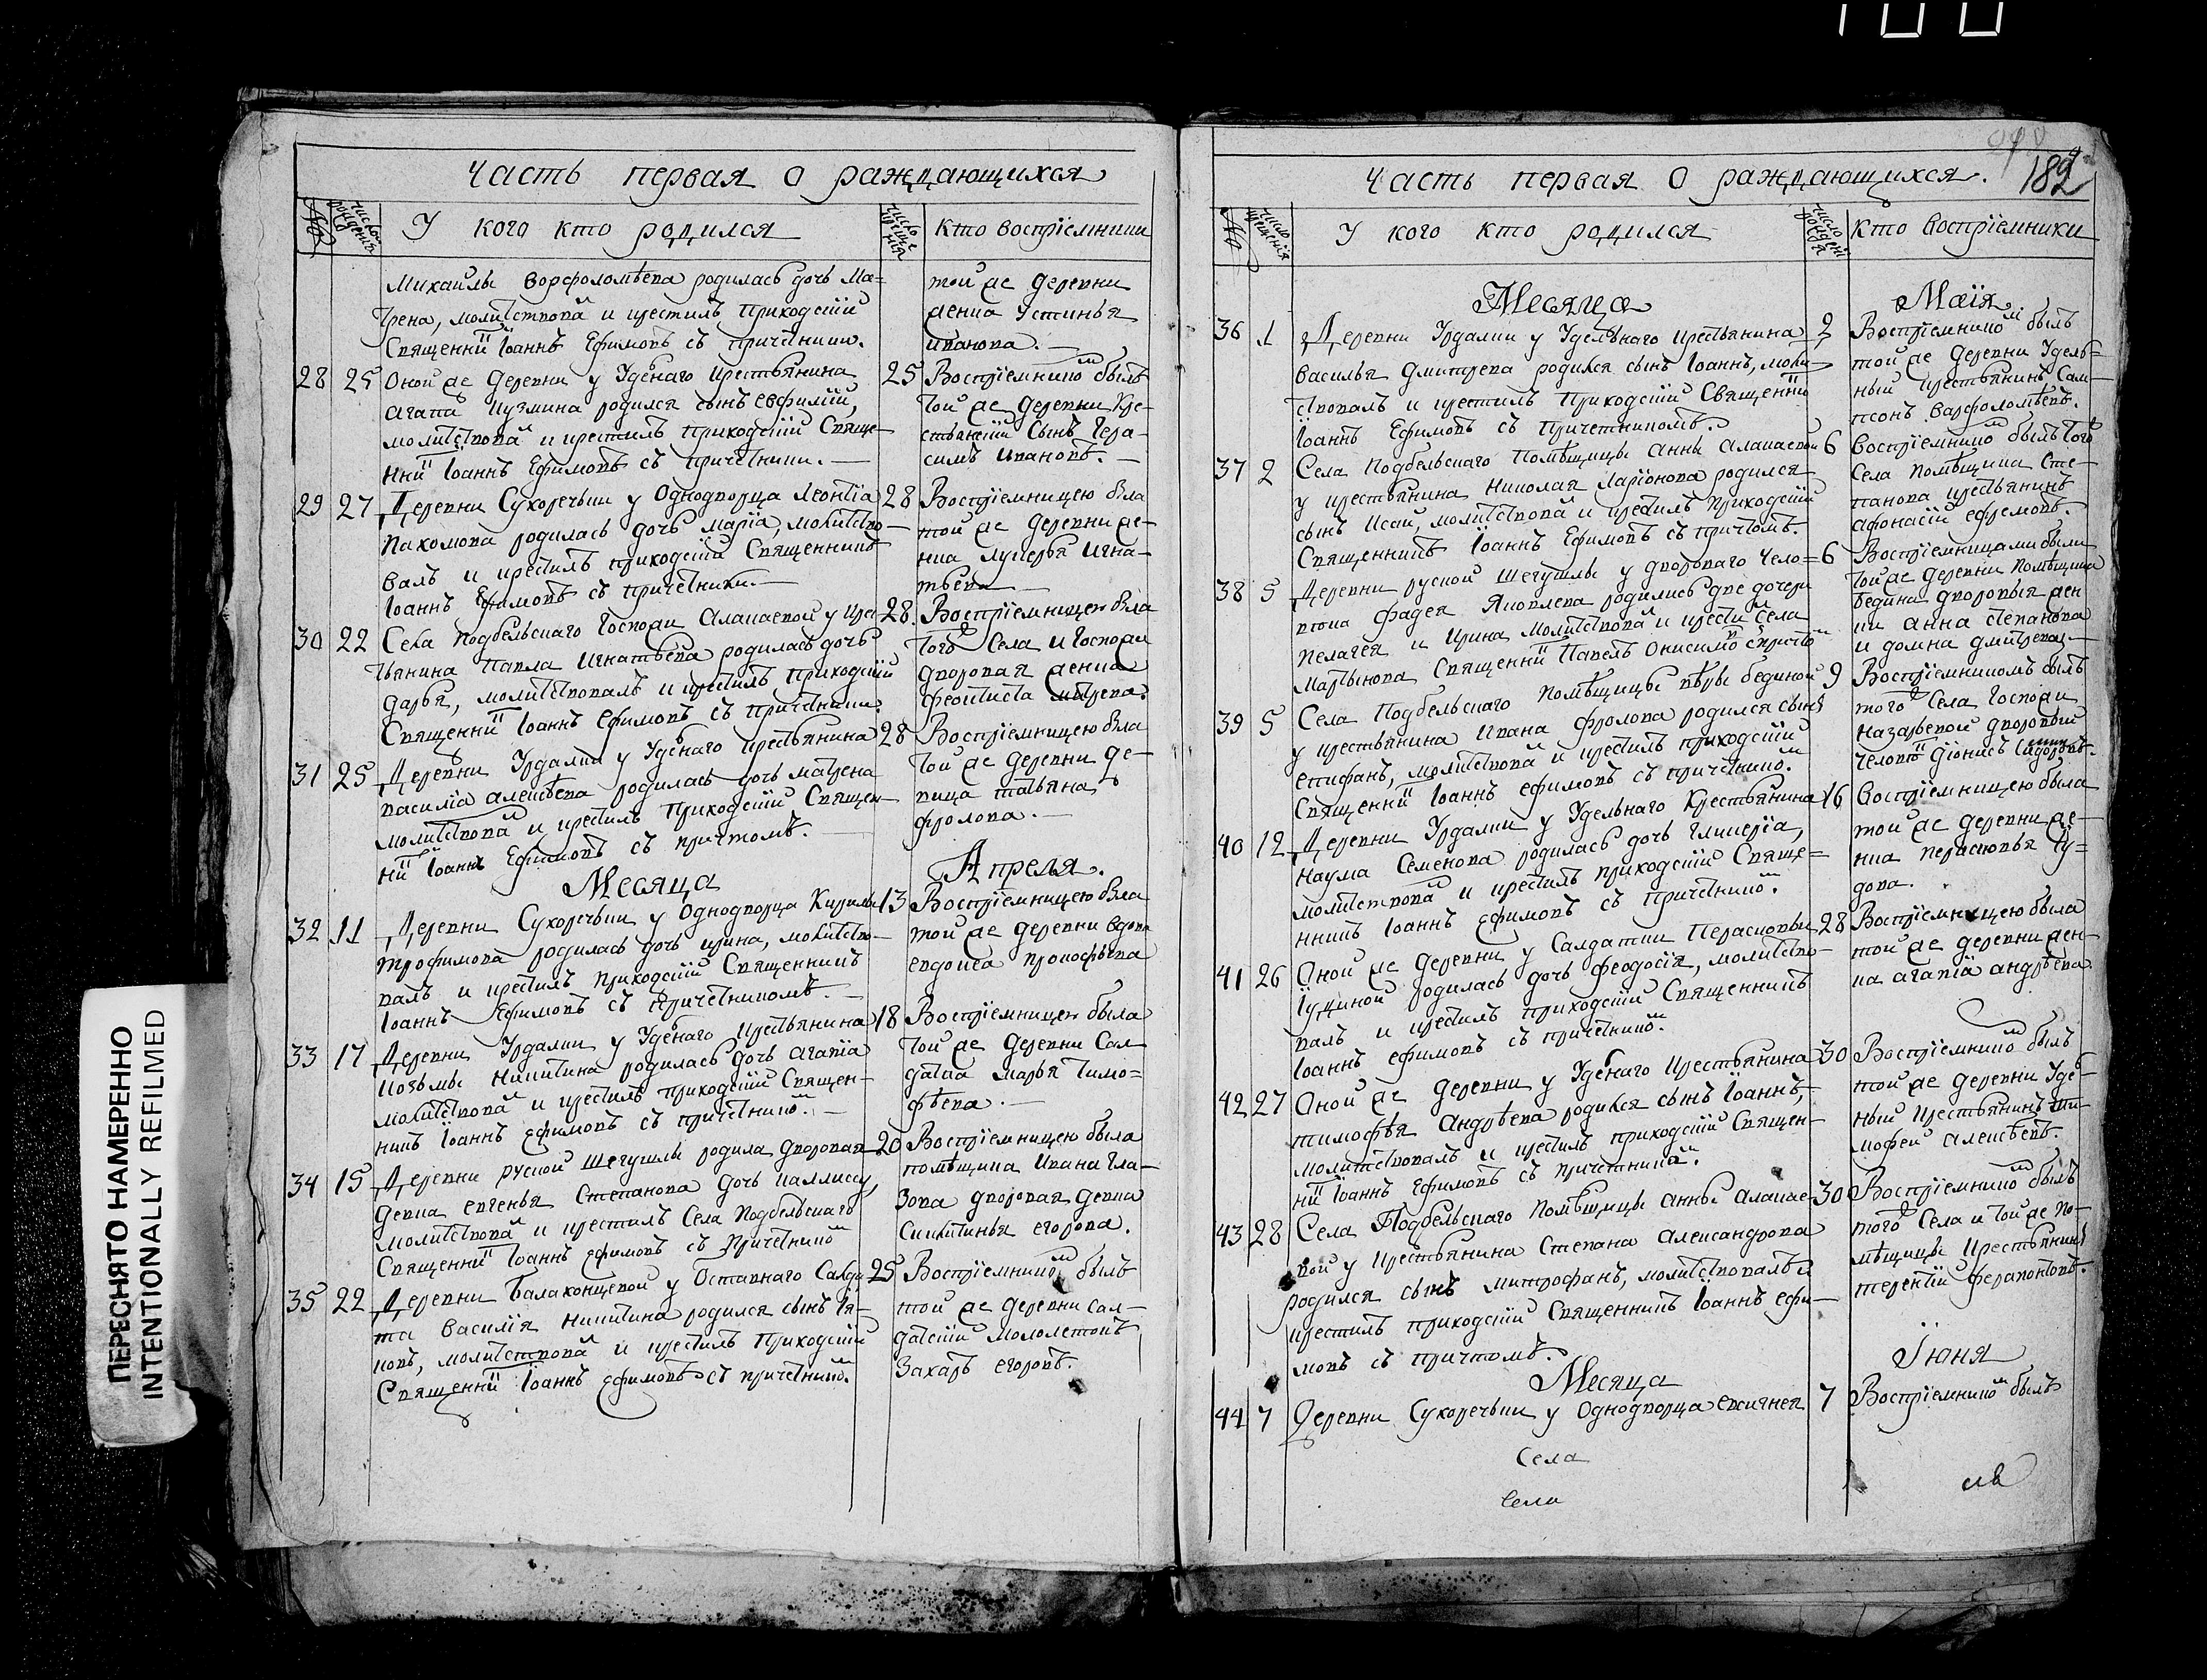 Часть первая о раждающихся
№
число рождения
У кого кто родился
число крещения
Кто Воспрїемники
Михайлы Ворфоломѣева родилась дочь Ма=
трена, молитствовай и крестилъ приходскїй
Священни Іоаннъ Ефимовъ съ причетники.
той же деревни
женка Устинья
Иванова.
28 25 Оной же деревни у Уденаго крестьянина
Агапа Кузмина родился сынъ Евфимій,
молитствовай и крестилъ приходскїй Свяще-
нни Іоаннъ Ефимовъ съ причетники.
25 Воспрїемнико былъ
той же деревни Кре-
стьянскїй Сынъ Гера-
симъ Ивановъ.
29 27 Деревни Сухоречьки у Однодворца Леонтїа
Пахомова родилась дочь Марїа, молитство-
валъ и крестилъ приходскїй Священникъ
Іоаннъ Ефимовъ съ причетники.
28 Воспрїемницею была
той же деревни же-
нка Лукерья Игна-
тьева
30 22 Села Подбельскаго Госпожи Алапаевой у Кре
тьянина Павла Игнатьева родилась дочь
Дарья, молитствовалъ и крестилъ приходскїй
Священни Іоаннъ Ефимовъ съ причетники.
28. Воспрїемницею была
того Села и Госпожи
дворовая женка
Феоктиста
31 25 Деревни Урдалки у Уденаго крестьянина
Василїа Алексѣева родилась дочь Матрена
молитствовай и крестилъ приходскїй Священ-
ни Іоаннъ Ефимовъ съ причтомъ.
28 Воспрїемницею была
той же деревни де-
вица Татьяна
Фролова.
Месяца Апреля.
32 11 Деревни Сухоречьки у Однодворца Кирилы
Трофимова родилась дочь Ирина, молитство-
валъ и крестилъ приходскїй Священникъ
Іоаннъ Ефимовъ съ Причетникомъ.
13 Воспрїемницею была
той же деревни вдова
Евдокеа Прокофьева
33 17 Деревни Урдалки у Уденаго крестьянина
Козьмы Никитина родилась дочь Агапїа
молитствовай и крестилъ приходскїй Священ-
никъ Іоаннъ Ефимовъ съ причетнико.
18 Воспрїемницею была
той же деревни Сол
датка Марья Тимо=
фѣева.
34 15 Деревни руской Шегушлы родила дворовая
девка Евгенья Степанова дочь Каллису,
молитствовай и крестилъ Села Подбельскаго
Священни Іоаннъ Ефимовъ съ причетнико
20 Воспрїемницею была
помѣщика Ивана Гла-
зова дворовая девка
Синклитинья Егорова.
35 22 Деревни Балаконцевой у Оставнаго Салда
та Василїя Никитина родился сынъ Їя-
ковъ, молитствовай и крестилъ приходскїй
Священни Іоаннъ Ефимовъ съ причетнико.
25 Воспрїемнико былъ
той же деревни сал-
датскїй мололетокъ
Захаръ Егоровъ.
182
Часть первая о раждающихся.
№
число крещенїя
У кого кто родился
число рожденїя
Кто Воспрїемники
Месяца Маїя
36 1 Деревни Урдалки у Удельнаго крестьянина
Василья Дмитрева родился сынъ Іоаннъ, моли-
ствовалъ и крестилъ приходскїй Священни
Іоаннъ Ефимовъ съ Причетникомъ.
2 Воспрїемнико былъ
той же деревни Удель-
ный крестьянинъ Сам-
псонъ Варфоломѣевъ.
37 2 Села Подбельскаго Помѣщицы Анны Алапаевой
у крестьянина Николая Ларїонова родился
сынъ Исаи, молитствовай и крестилъ приходскїй
Священникъ Іоаннъ Ефимовъ съ причтомъ.
6 Воспрїемнико былъ того
Села помѣщика Сте-
панова крестьянинъ
Афонасїй Ефремовъ.
38 5 Деревни руской Шегушлы у двороваго чело=
века Фадея Яковлева родились две дочери
Пелагея и Ирина молитствовай и крести Села
Мартынова Священни Павелъ Онисимо
6 Воспрїемницами были
той же деревни помѣщика
Бедина дворовыя жен
ки Анна Степанова
и Домна Дмитрева
39 5 Села Подбельскаго Помѣщицы Вѣры Бединой
у крестьянина Ивана Фролова родился сынъ
Епифанъ, молитствовай и крестилъ приходскїй
Священни Іоаннъ Ефимовъ съ причетнико.
9 Воспрїемникомъ былъ
того Села Госпожи
Назарьевой дворовый
человѣ Дїонисъ
40 12 Деревни Урдалки у Удельнаго Крестьянина
Наума Семенова родилась дочь Гликерїа,
молитствовай и крестилъ приходскїй Свяще=
нникъ Іоаннъ Ефимовъ съ причетнико.
16 Воспрїемницею была
той же деревни же-
нка Перасковья Їу=
дова.
41 26 Оной же деревни у Салдатки Перасковьи
Їудиной родилась дочь Феодосїя, молитство-
валъ и крестилъ приходскїй Священникъ
Іоаннъ Ефимовъ съ причетнико.
28 Воспрїемницею была
той же деревни жен-
ка Агапїа Андрѣева
42 27 Оной же деревни у Уденаго крестьянина
Тимофѣя Андрѣева родился сынъ Іоаннъ,
молитствовалъ и крестилъ приходскїй Священ-
ни Іоаннъ Ефимовъ съ причетнико.
30 Воспрїемнико былъ
той же деревни Уде-
ный крестьянинъ Ти-
мофей Алексѣевъ.
43 28 Села Подбельскаго Помѣщицы Анны Алапае-
вой у Крестьянина Степана Александрова
родился сынъ Митрофанъ, молитствовалъ и
крестилъ приходскїй Священникъ Іоаннъ Ефи-
мовъ съ причтомъ.
30 Воспрїемнико былъ
того Села и той же по-
мѣщицы Крестьянинъ
Терентїй Ферапонтовъ.
Месяца Їюня
44 7 Деревни Сухоречьки у Однодворца Евсигнея
7 Воспрїемнико былъ
Села
Села
ПЕРЕСНЯТО НАМЕРЕННО
INTENTIONALLY REFILMED